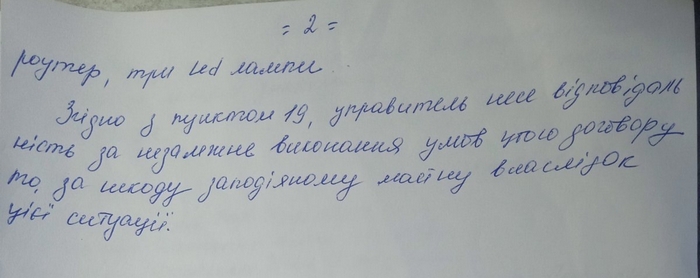 = 2 =
роутер, три led лампи.
Згідно з пунктом 19, управитель несе відповідаль
ність за неналежне виконання умов цього договору
та, за шкоду заподіяному майну внаслідок
цієї ситуації.